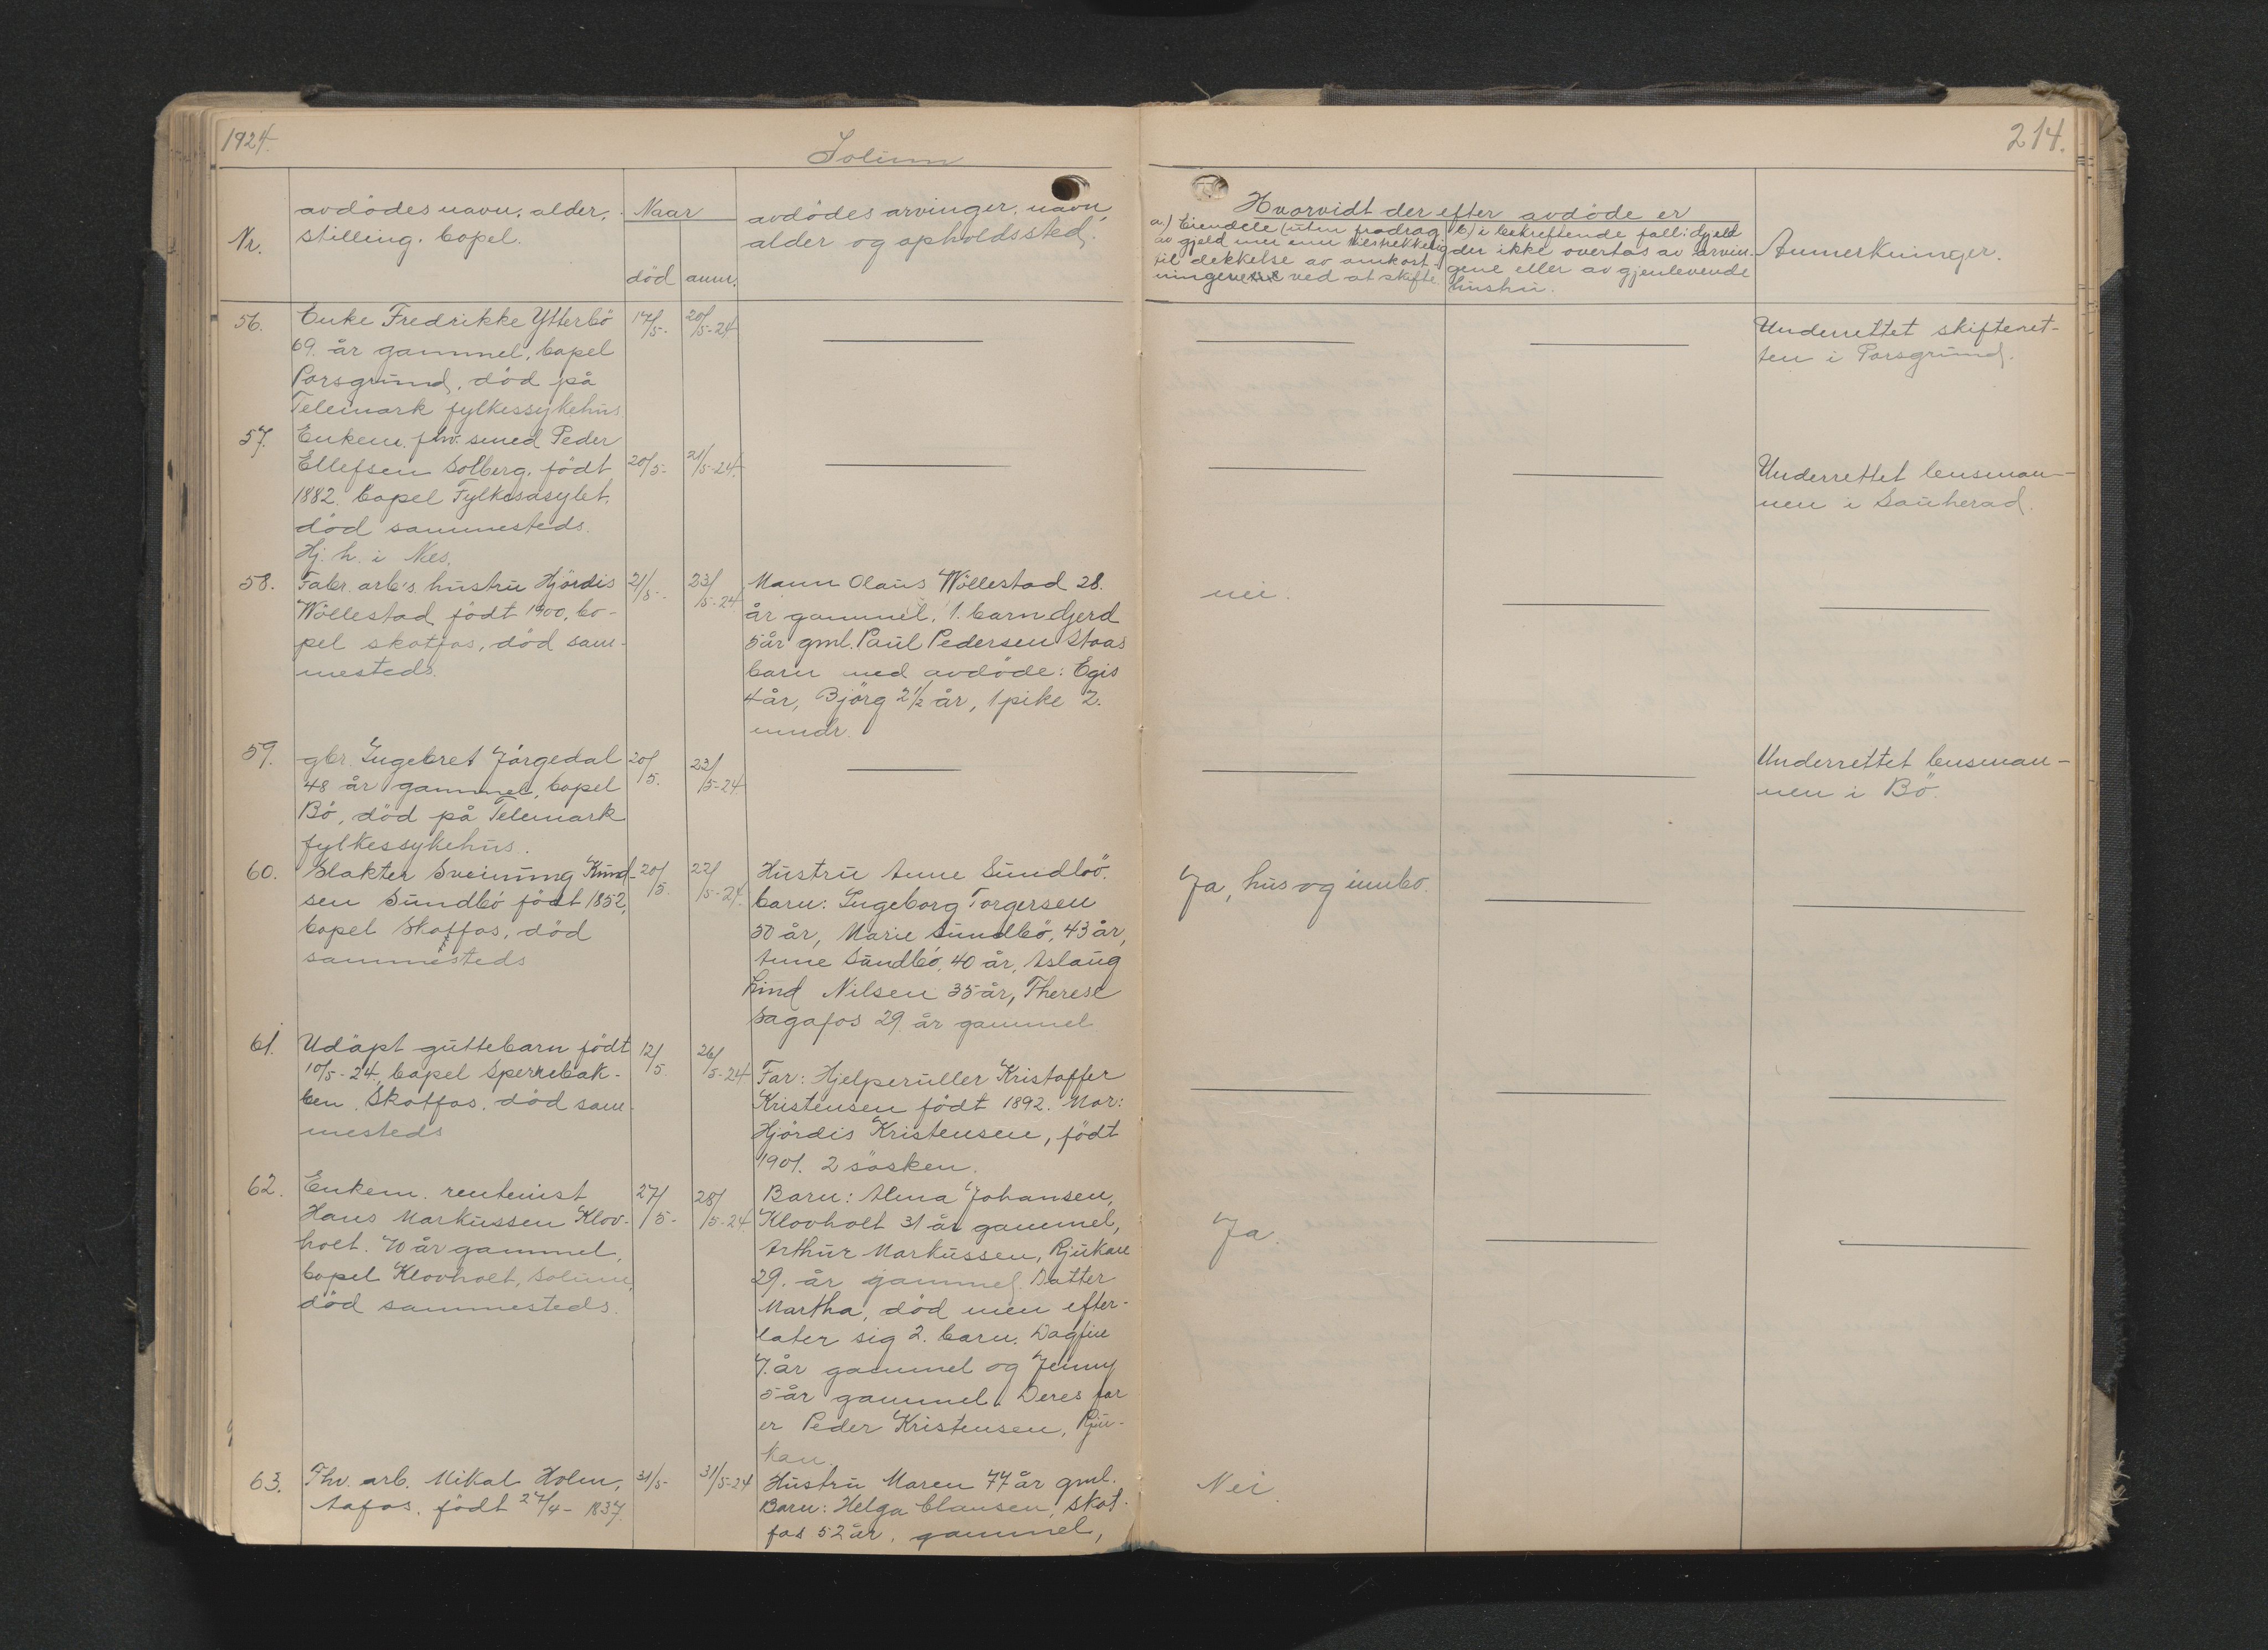 1924.
Solum
214.
Nr.
avdödes navn, alder,
stilling. bopel.
Naar
död
anm.
avdödes arvinger, navn,
alder og opholdssted.
Hvorvidt der efter avdöde er
a.) Eiendele (uten fradrag
av gjeld mer enn tilstrekkelig
til dekkelse av omkost-
ningene ved at skifte
b.) i bekreftende fall: Gjeld
der ikke overtas av arvin-
gene eller av gjenlevende
hustru.
Anmerkninger.
56.
Enke Fredrikke Ytterbö
69. år gammel, bopel
Porsgrund, död på
Telemark fylkessykehus
17/5-
20/5-24.
Underrettet skifteret-
ten i Porsgrund.
57.
Enkem. fhv. smed Peder
Ellefsen Solberg, födt
1882. bopel Fylkesasylet,
död sammesteds.
Hj. h. i Nes.
20/5-
21/5-24.
Underrettet lensman-
nen i Sauherad.
58.
Fabr. arb's. hustru Hjördis
Wöllestad födt 1900, bo-
pel skotfos, död sam-
mesteds.
21/5-
23/5-24.
Mann Olaus Wöllestad 28.
år gammel, 1. barn Gjerd
5 år gml. Paul Pedersen Staas
barn med avdöde: Egis
4 år, Björg 2 1/2 år, 1 pike 2.
mndr.
nei.
59.
gbr. Ingebret Jörgedal
48 år gammel, bopel
Bö, död på Telemark
fylkessykehus.
20/5.
23/5-24.
Underrettet lensman-
nen i Bö.
60.
Slakter Sveinung Knud-
sen Sundbö födt 1852,
bopel Skotfos, död
sammesteds
20/5.
22/5-24.
Hustru Anne Sundbö.
barn: Ingeborg Torgersen
50 år, Marie Sundbö, 43 år,
Anne Sundbö, 40 år, Aslaug
Lind Nilsen 35 år, Therese
Sagafos 29. år gammel
Ja, hus og innbo.
61.
Udöpt guttebarn födt
10/5-24, bopel Sperrebak-
ken, Skotfos. död sam-
mesteds
12/5.
26/5-24
Far: Hjelperuller Kristoffer
Kristensen födt 1892. Mor:
Hjördis Kristensen, födt
1901. 2 sösken.
62.
Enkem. rentenist
Hans Markussen Klov-
holt. 70 år gammel,
bopel Klovholt, Solum,
död sammesteds.
27/5-
28/5-24
Barn: Alma Johansen,
Klovholt 31 år gammel,
Arthur Markussen, Rjukan
29. år gammel. Datter
Martha, död men efter-
later sig 2. barn. Dagfin
7. år gammel og Jenny
5 år gammel. Deres far
er Peder Kristensen, Rju-
kan.
Ja.
63.
Fhv. arb. Mikal Holm,
Aafos. födt 27/4-1837.
31/5-
31/5-24
Hustru Maren 77 år gml.
Barn: Helga Clausen, Skot-
fos 52 år. gammel,
Nei.